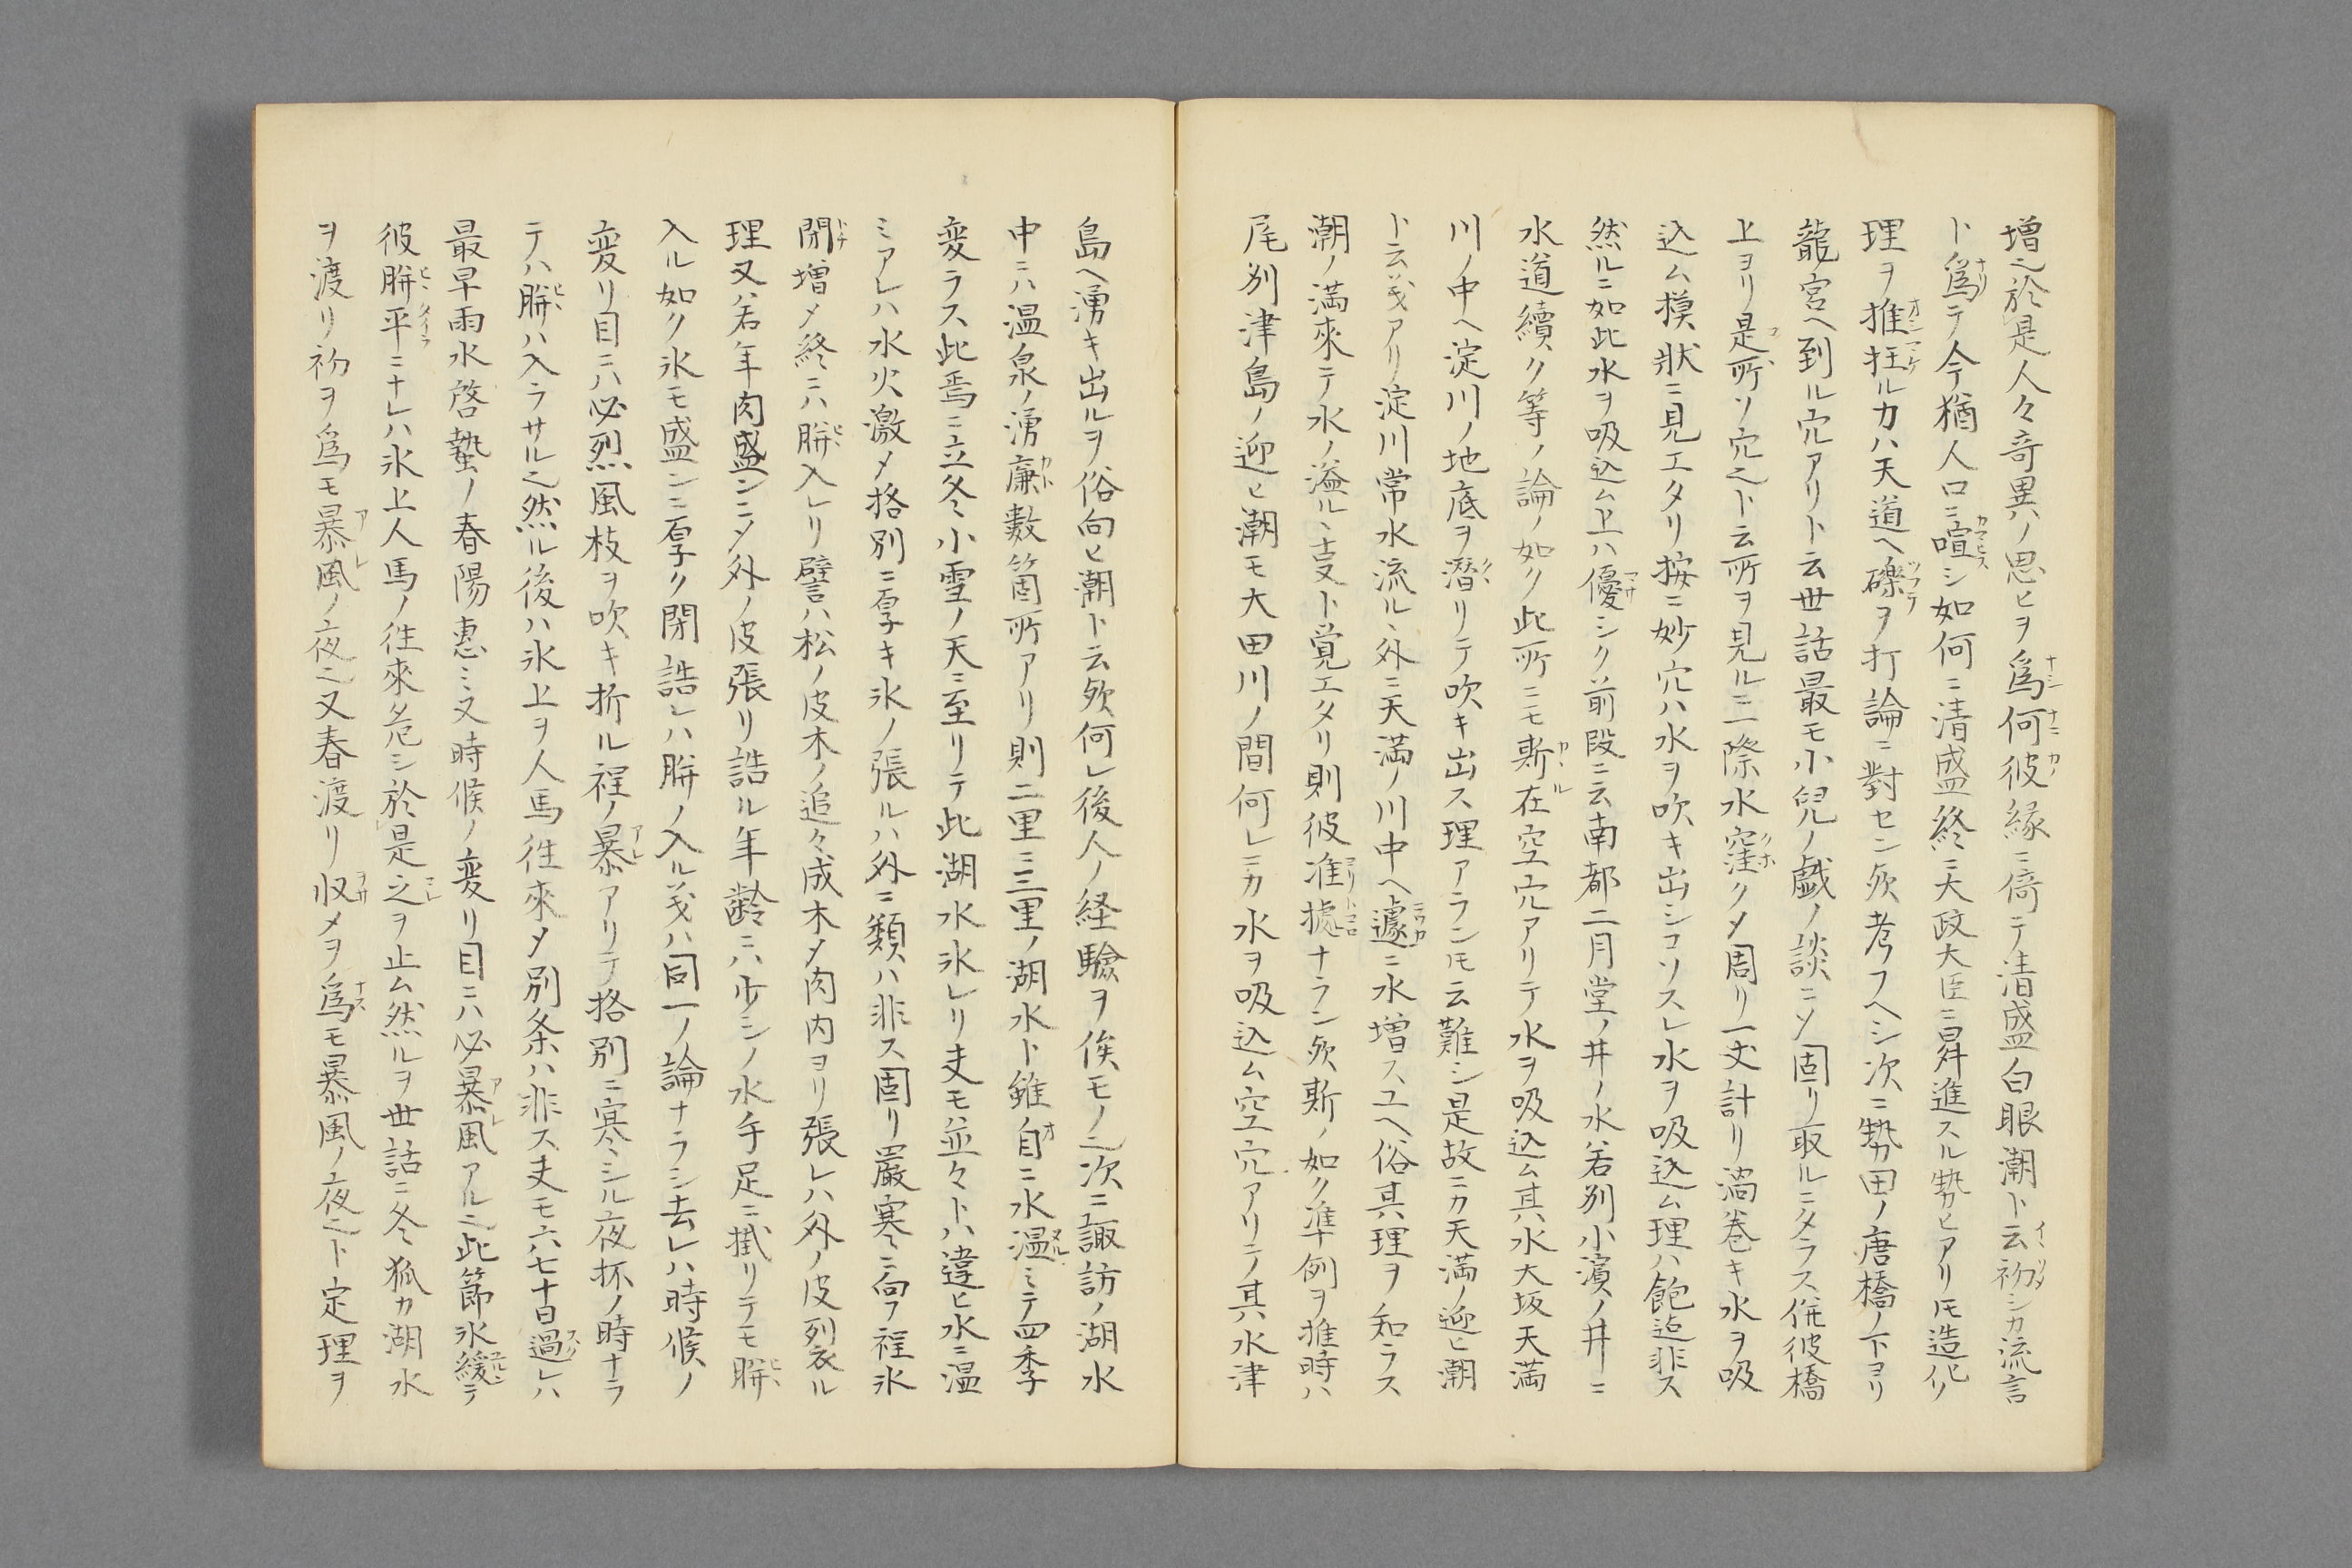 増之於是人々奇異ノ思ヒヲ爲何彼縁ニ倚テ清盛白眼潮ト云初シカ流言
ト爲テ今猶人口ニ喧シ如何ニ清盛終ニ大政大臣ニ昇進スル勢ヒアリ𪜈造化ノ
理ヲ推枉ルカハ天道ヘ礫ヲ打論ニ對セン欤考フヘシ次ニ勢田ノ唐橋ノ下ヨリ
龍宮ヘ到ル穴アリト云世話最モ小兒ノ戯ノ談ニソ固リ取ルニタラス併彼橋
上ヨリ是所ソ穴之ト云所ヲ見ルニ一際水窪クメ周リ一丈計リ渦巻キ水ヲ吸
込ム摸状ニ見エタリ按ニ妙穴ハ水ヲ吹キ出シコソスレ水ヲ吸込ム理ハ飽迄非ス
然ルニ如此水ヲ吸込ム上ハ優シク前段ニ云南都二月堂ノ井ノ水若別小濵ノ井ニ
水道續ク等ノ論ノ如ク此所ニモ斯在空穴アリテ水ヲ吸込ム其水大坂天満
川ノ中ヘ淀川ノ地底ヲ潜リテ吹キ出ス理アラン𪜈云難シ是故ニカ天満ノ迎ヒ潮
ト云義アリ淀川常水流ル丶外ニ天満ノ川中ヘ遽ニ水増スユヘ俗其理ヲ知ラス
潮ノ満來テ水ノ溢ル丶支ト覚エタリ則彼准據ナラン欤斯ノ如ク準例ヲ推時ハ
尾別津島ノ迎ヒ潮モ大田川ノ間何レニカ水ヲ吸込ム空穴アリテ其水津
島ヘ湧キ出ルヲ俗向ヒ潮ト云欤何レ後人ノ経驗ヲ俟モノ之次ニ諏訪ノ湖水
中ニハ温泉ノ湧廉數箇所アリ則二里三里ノ湖水ト雖自ニ水温ミテ四季
変ラス此焉ニ立冬小雪ノ天ニ至リテ此湖水氷レリ支モ並々トハ違ヒ水ニ温
ミアレハ水火激メ格別ニ厚キ氷ノ張ルハ外ニ類ハ非ス固リ嚴寒ニ向フ程氷
閉増メ終ニハ胼入レリ譬ハ松ノ皮木ノ追々成木メ肉内ヨリ張レハ外ノ皮裂ル
理又ハ若年肉盛ンニメ外ノ皮張リ誥ル年齢ニハ少シノ水手足ニ掛リテモ胼
入ル如ク氷モ盛ンニ厚ク閉誥レハ胼ノ入ル義ハ同一ノ論ナラシ去レハ時候ノ
変リ目ニハ必烈風枝ヲ吹キ折ル程ノ暴アリテ格別ニ寒シル夜抔ノ時ナラ
テハ胼ハ入ラサル之然ル後ハ氷上ヲ人馬徃來メ別条ハ非ス支モ六七十日過レハ
最早雨水啓蟄ノ春陽恵ミ又時候ノ変リ目ニハ必暴風アル之此節氷緩テ
彼胼平ニナレハ氷上人馬ノ徃來危シ於是之ヲ止ム然ルヲ世話ニ冬狐カ湖水
ヲ渡リ初ヲ爲モ暴風ノ夜之又春渡リ収メヲ爲モ暴風ノ夜之ト定理ヲ